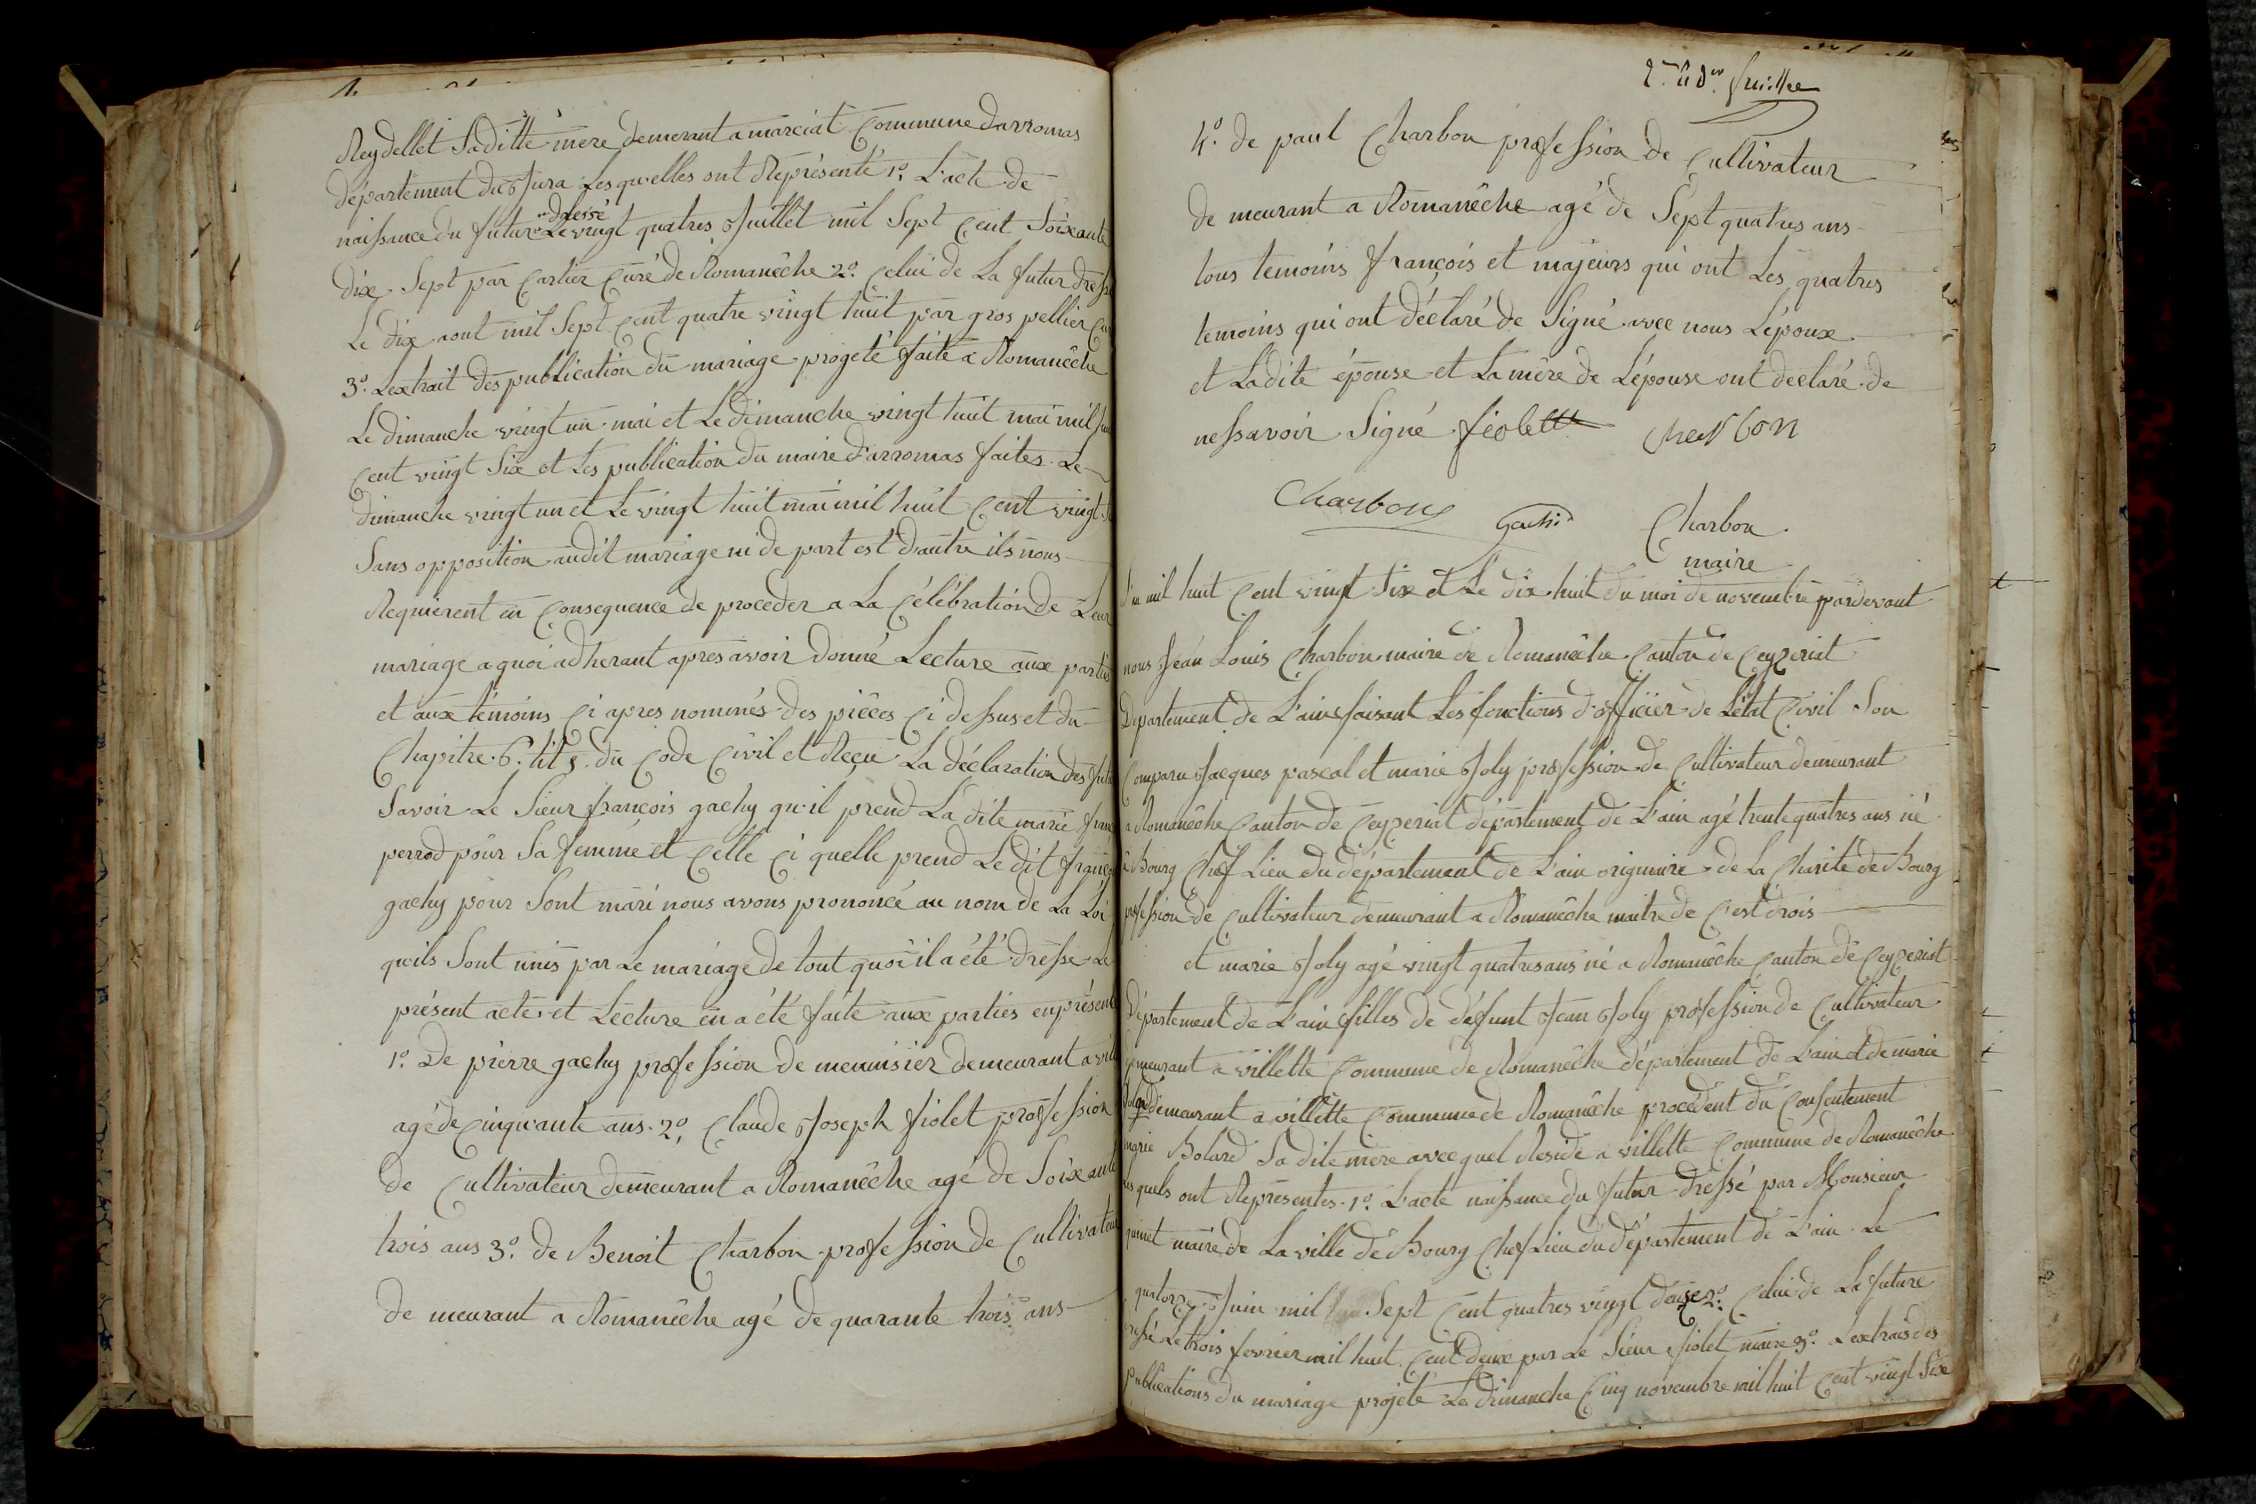 Reydellet Saditte mere demerant a marciat Commune darromas
département du Jura Lesquelles ont Réprésenté 1º. L'acte de
dressé
naissance du futur Le vingt quatres Juillet mil Sept Cent Soixante
dix Sept par Carlier Curé de Romanêche 2º. Celui de La futur dressé
Le dix aout mil Sept Cent quatre vingt huit par gros pellier
3º. Lextrait des publication du mariage projeté faite a Romanêche
Le dimanche vingt un mai et Le dimanche vingt huit mai mil
Cent vingt Six et Les publication du maire d'arromas faites Le
dimanche vingt un et Le vingt huit mai mil huit Cent vingt
Sans opposition audit mariage ni de part est d'autre ils nous
Requièrent en Consequence de proceder a La Célébration de Leur
mariage a quoi adherant apres avoir donné Lecture aux parties
et aux témoins Ci apres nommés des pièces Ci dessus et du
Chapitre 6. tit 5. du Code Civil et Reçu La déclaration des
Savoir Le Sieur françois gachy qu'il prend La dite marie
perrod pour Sa femme et Celle Ci quelle prend Le dit
gachy pour Sont mari nous avons prononcé au nom de La Loi
quils Sont unis par Le mariage de tout quoi il a été dressé Le
présent acte et Lecture en a été faite aux parties en présence
1º. De pierre gachy profession de menuisier demeurant a
agé de Cinquante ans 2º. Claude Joseph fiolet profession
de Cultivateur demeurant a Romanêche agé de Soixante
trois ans 3º. de Benoit Charbon profession de Cultivateur
de meurant a Romanêche agé de quarante trois ans
4º. de paul Charbon profession de Cultivateur
de meurant a Romanêche agé de Sept quatres ans
tous temoins françois et majeurs qui ont Les quatres
temoins qui ont déclaré de Signé avec nous L'époux
et Ladite épouse et La mère de L'épouse ont déclaré de
nessavoir Signé fiolett Charbon
Charbon gachi Charbon
maire
mil huit Cent vingt Six et Le dix huit du moi de novembre pardevant
nous Jean Louis Charbon maire de Romanêche Canton de Ceyzeriat
Département de L'ain faisant Les fonctions d'officier de L'état Civil Son
Comparu Jacques pascal et marie Joly profession de Cultivateur demeurant
a Romanêche Canton de Ceyzeriat département de L'ain agé trente quatres ans né
a Bourg Chef Lieu du département de L'ain originaire de La Charité de Bourg
profession de Cultivateur demeurant a Romanêche maitre de C'est drois
et marie Joly agé vingt quatres ans né a Romanêche Canton de Ceyzeriat
Département de L'ain filles de défunt Jean Joly profession de Cultivateur
demeurant a villette Commune de Romanêche département de L'ain et de marie
demeurant a villette Commune de Romanêche procédent du Consentement
marie Bolard Sa dite mère avec quel Reside a villette Commune de Romanêche
Lesquels ont Représentes 1º. L'acte naissance du futur dressé par Monsieur
quinet maire de La ville de Bourg Chef Lieu du département de L'ain Le
quatorze Juin mil Sept Cent quatres vingt douze 2º. Celui de La future
dressé Le trois fevrier mil huit Cent deux par Le Sieur fiolet maire 3º. Lextrais des
publications du mariage projeté Le dimanche Cinq novembre mil huit Cent vingt Six